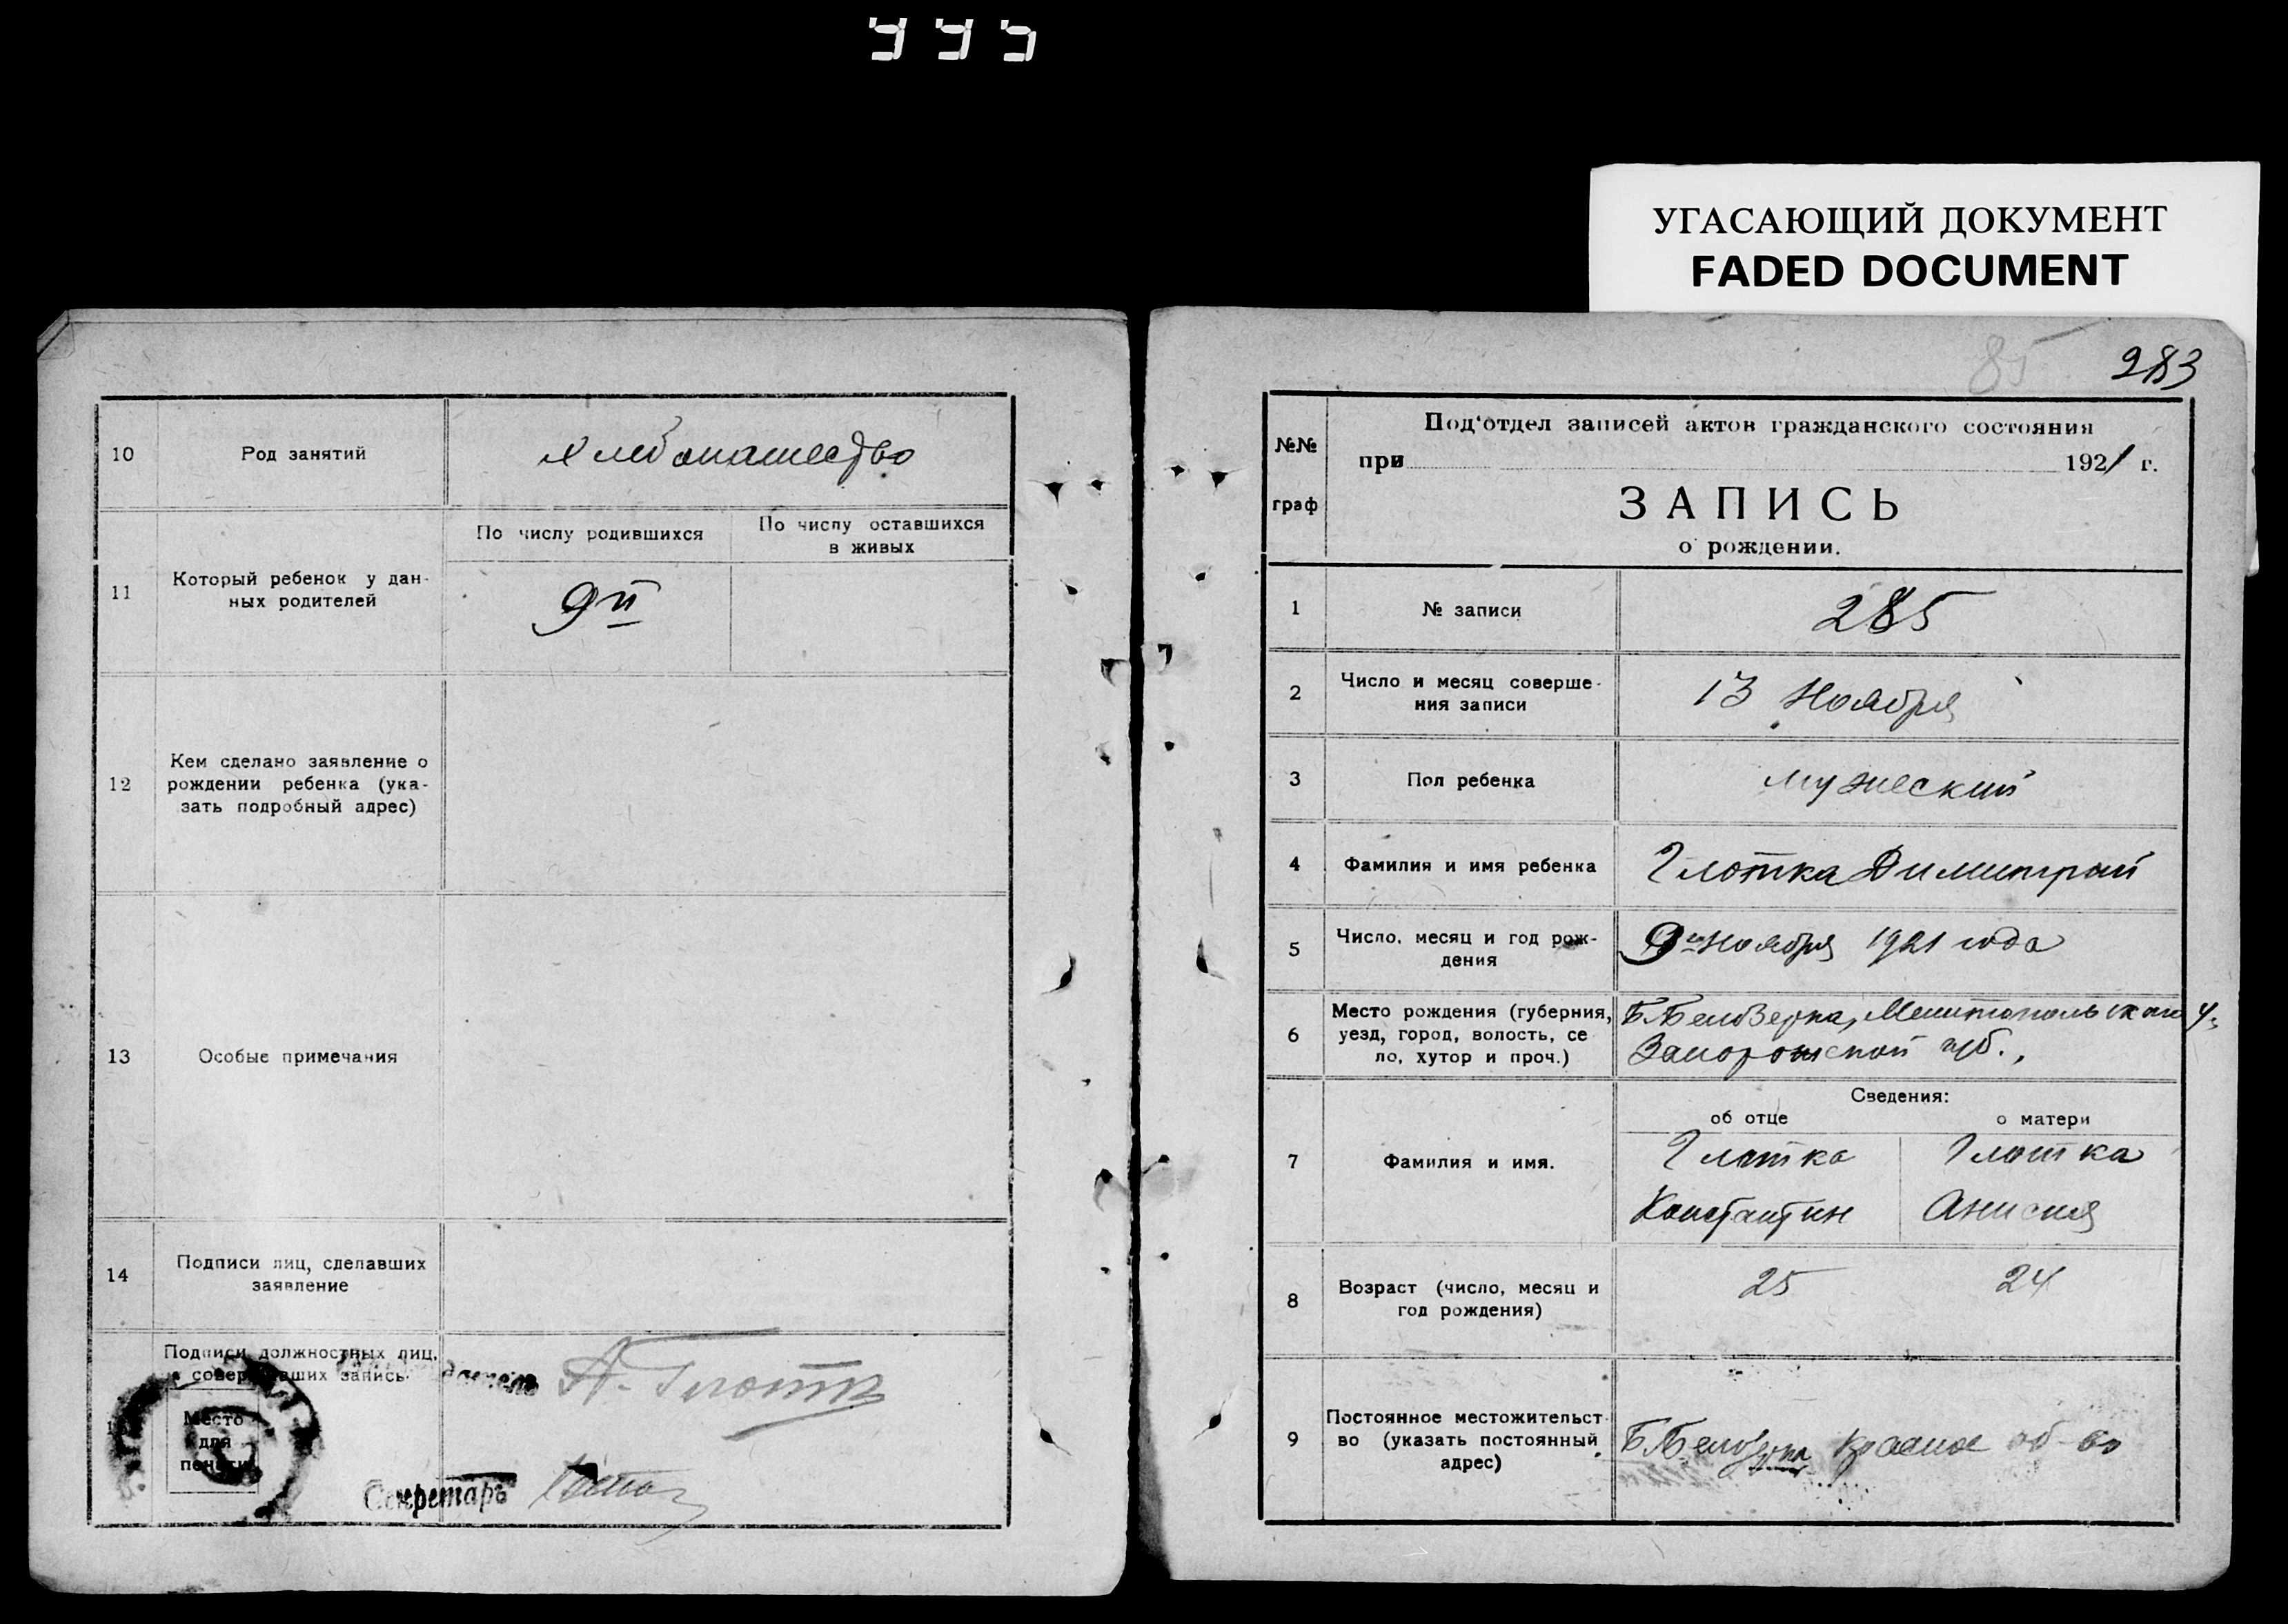 995
УГАСАЮЩИЙ ДОКУМЕНТ
FADED DOCUMENT
10
Род занятий
хлебопашество
11
Который ребенок у дан-
ных родителей
По числу родившихся
По числу оставшихся
в живых
9й
12
Кем сделано заявление о
рождении ребенка (ука-
зать подробный адрес)
13
Особые примечания
14
Подписи лиц, сделавших
заявление
Подписи должностных лиц,
совершивших запись
А. Глотка
Место
для
печати
Секретарь
85
283
№№
граф
Под'отдел записей актов гражданского состояния
при 1921 г.
ЗАПИСЬ
о рождении.
1
№ записи
285
2
Число и месяц соверше-
ния записи
13 Ноября
3
Пол ребенка
мужеский
4
Фамилия и имя ребенка
Глотка Димитрий
5
Число, месяц и год рож-
дения
9го Ноября 1921 года
6
Место рождения (губерния,
уезд, город, волость, се
ло, хутор и проч.)
Б. Белозерка, Мелитопольского у.
Запорожской губ.,
7
Фамилия и имя.
Сведения:
об отце
о матери
Глотка
Константин
Глотка
Анисия
8
Возраст (число, месяц и
год рождения)
25
24
9
Постоянное местожительст
во (указать постоянный
адрес)
Б. Белозерка Красное об-во